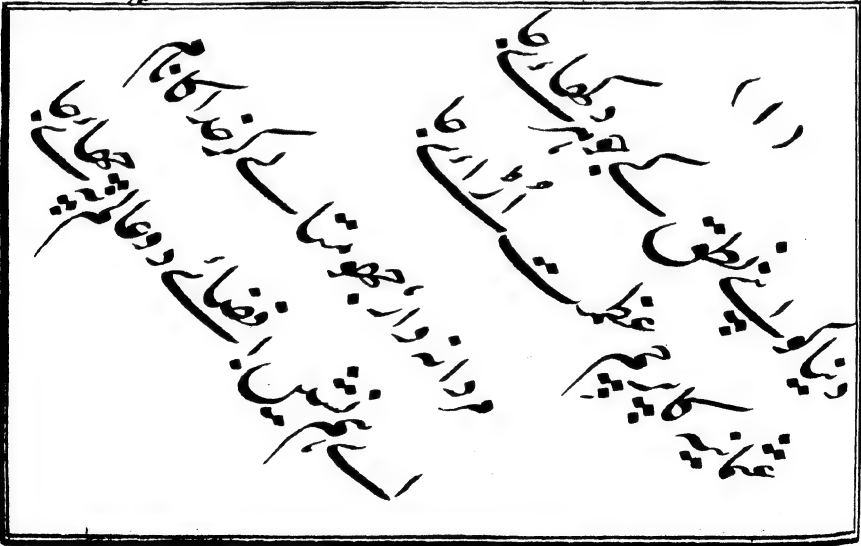 (۱)
دنیا کو اپنے نطق کے جوہر دکھائے جا
عثمانیہ کا پرچم عظمت اُڑائے جا
مردانہ وار، جھومتا لے کر خدا کا نام
اے ہم نشیں! فضائے دو عالم پہ چھائے جا